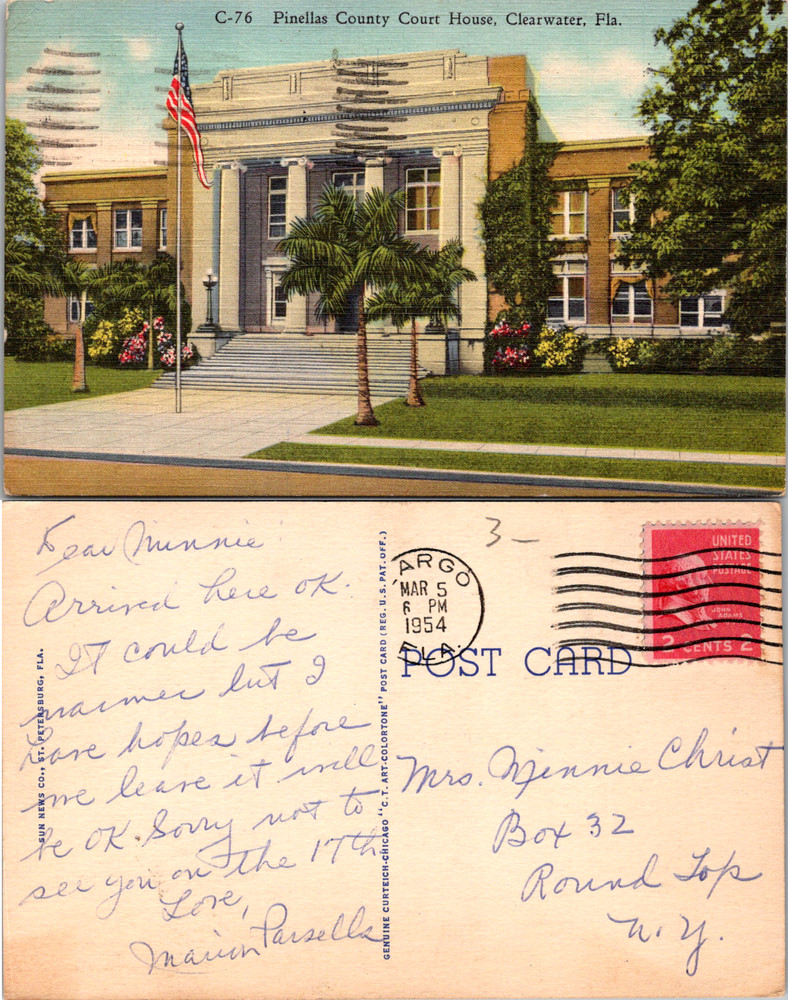 C-76 Pinellas County Court House, Clearwater, Fla.
Dear Minnie
Arrived here OK.
It could be
warmer but I
have hopes before
we leave it will
be OK. Sorry not to
see you on the 17th
Love,
Marion Parsells
SUN NEWS CO., ST. PETERSBURG, FLA.
GENUINE CURTEICH-CHICAGO "C.T. ART-COLORTONE" POST CARD (REG. U.S. PAT. OFF.)
3-
LARGO
MAR 5
6 PM
1954
FLA.
UNITED
STATES
POSTAGE
JOHN
ADAMS
2 CENTS 2
POST CARD
Mrs. Minnie Christ
Box 32
Round Top
N.Y.